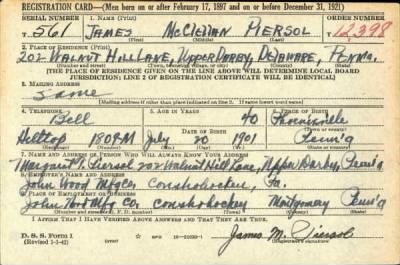 REGISTRATION CARD—(Men born on or after February 17, 1897 and on or before December 31, 1921)
SERIAL NUMBER 1. NAME (Print) ORDER NUMBER
T 561 JAMES McClellan PIERSOL T12,398
(First) (Middle) (Last)
2. PLACE OF RESIDENCE (Print)
202 WALNUT HILL LANE, UPPER DARBY, DELAWARE, PENNA.
(Number and street) (Town, township, village, or city) (County) (State)
[THE PLACE OF RESIDENCE GIVEN ON THE LINE ABOVE WILL DETERMINE LOCAL BOARD
JURISDICTION; LINE 2 OF REGISTRATION CERTIFICATE WILL BE IDENTICAL]
3. MAILING ADDRESS
Same
[Mailing address if other than place indicated on line 2. If same insert word same]
4. TELEPHONE 5. AGE IN YEARS 6. PLACE OF BIRTH
Bell 40 Phoenixville
DATE OF BIRTH
Hilltop 1808M July 20 1901 Penn'a
(Exchange) (Number) (Mo.) (Day) (Yr.) (State or country)
7. NAME AND ADDRESS OF PERSON WHO WILL ALWAYS KNOW YOUR ADDRESS
Margaret Piersol 202 Walnut Hill Lane, Upper Darby, Penn'a
8. EMPLOYER'S NAME AND ADDRESS
John Wood Mfg Co. Conshohocken, Pa.
9. PLACE OF EMPLOYMENT OR BUSINESS
John Wood Mfg Co. Conshohocken Montgomery Penn'a
(Number and street or R. F. D. number) (Town) (County) (State)
I AFFIRM THAT I HAVE VERIFIED ABOVE ANSWERS AND THAT THEY ARE TRUE.
D. S. S. Form 1
(Revised 1-1-42) (over)
James M. Piersol
(Registrant's signature)